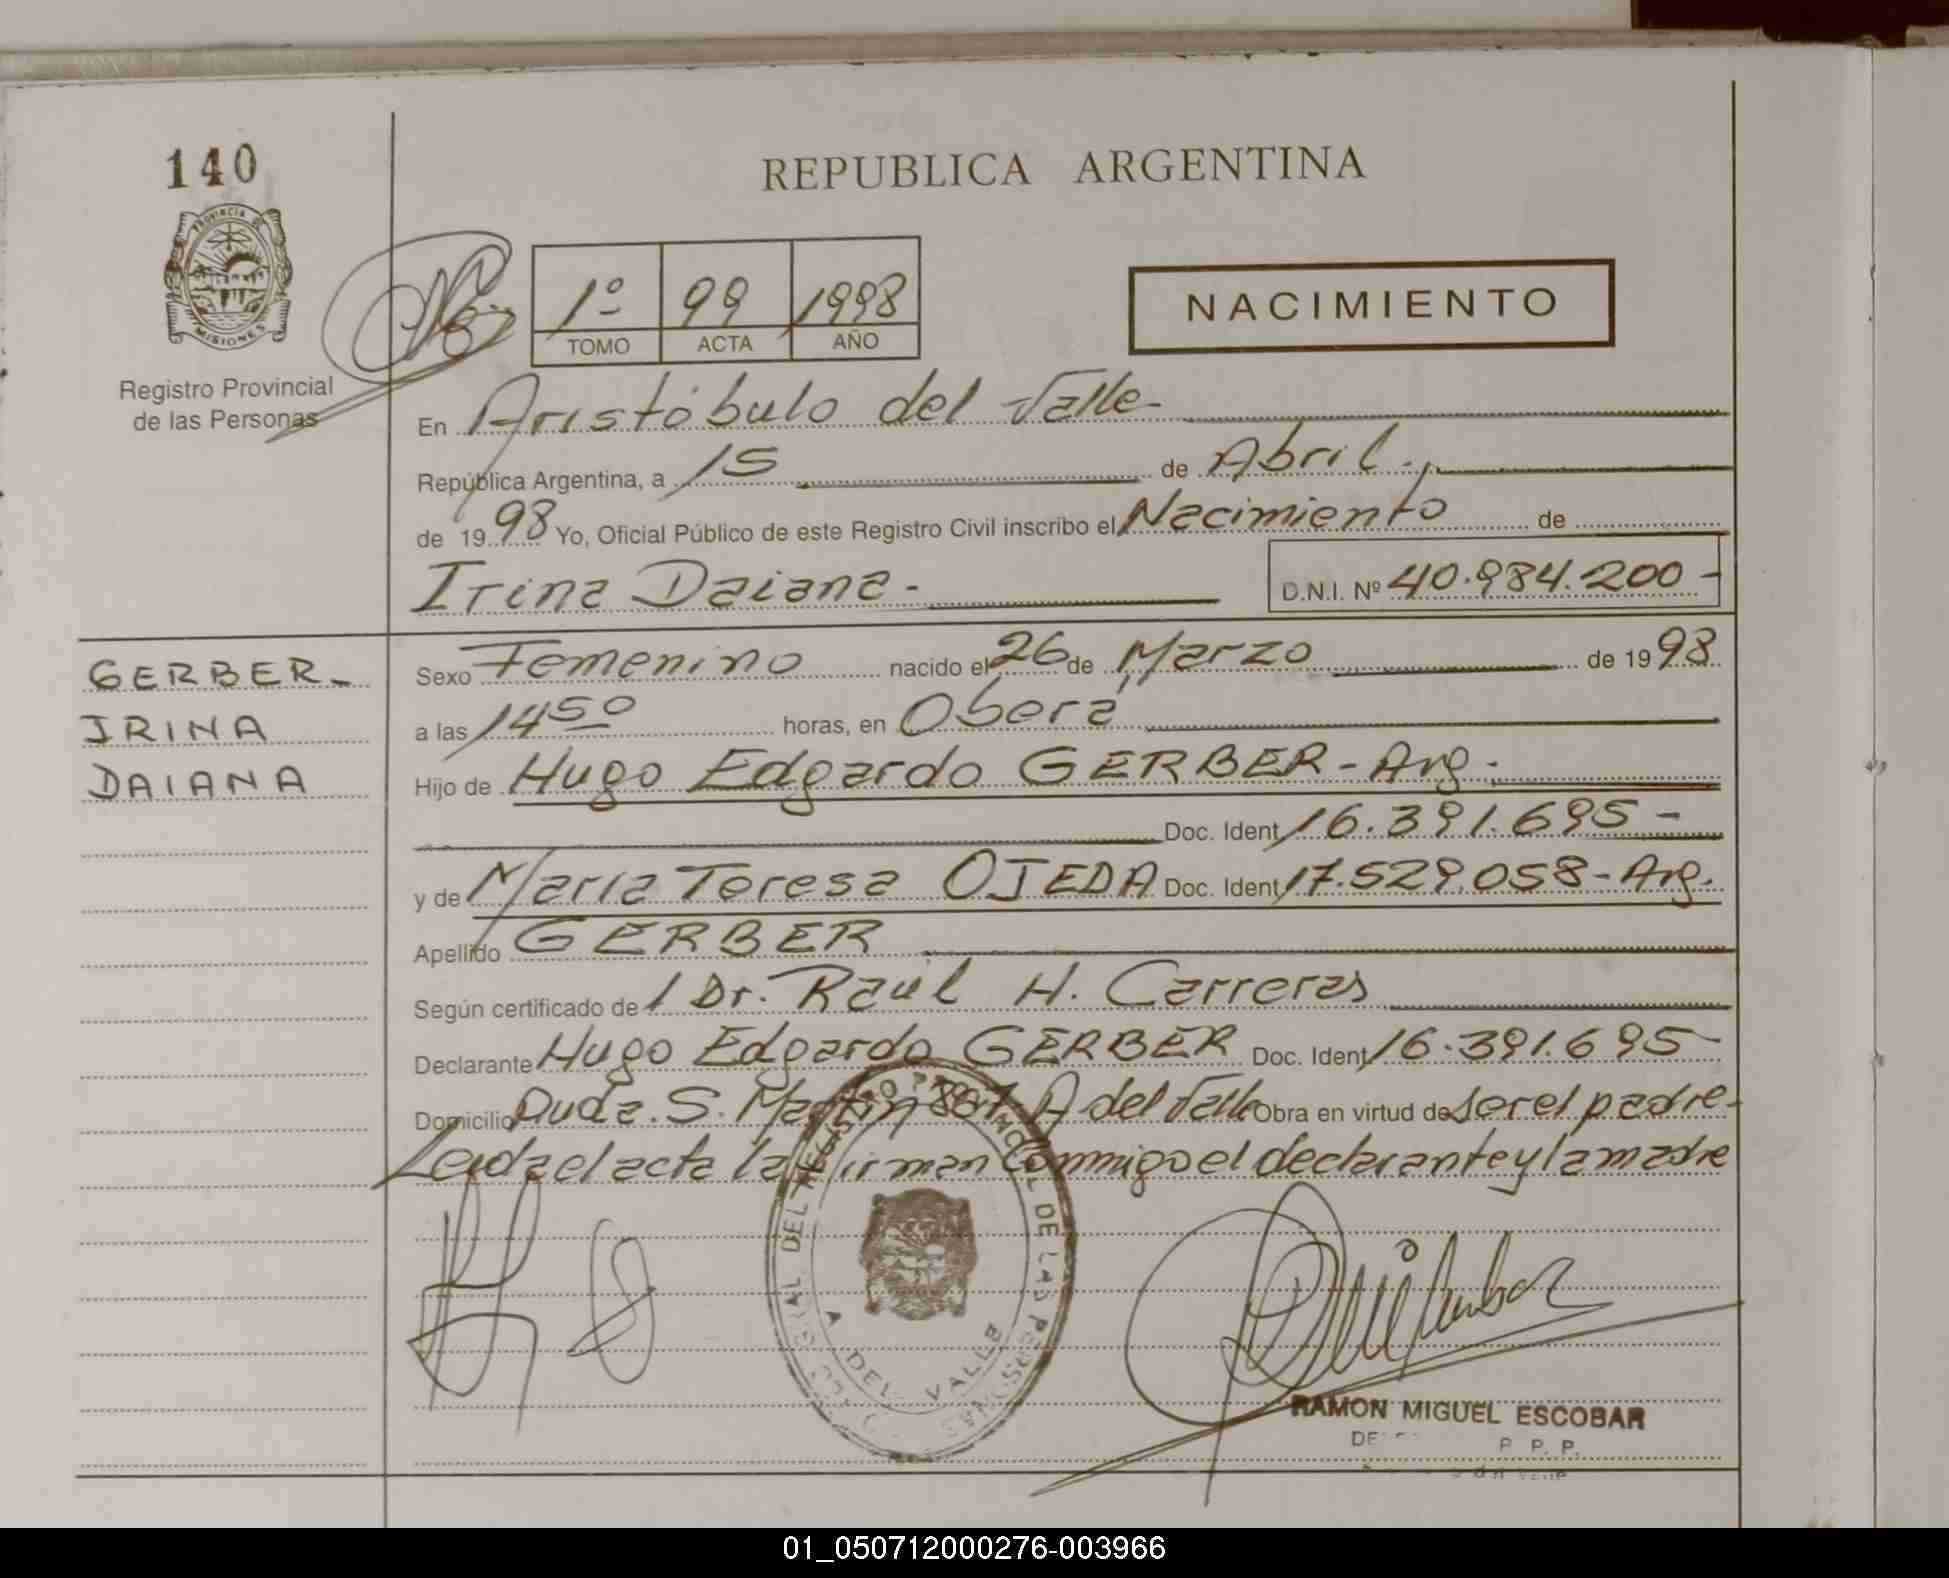 140
REPUBLICA ARGENTINA
PROVINCIA DE
MISIONES
Registro Provincial
de las Personas
1º 99 1998
TOMO ACTA AÑO
NACIMIENTO
En Aristóbulo del Valle-
República Argentina, a 15 de Abril.,
de 1998 Yo, Oficial Público de este Registro Civil inscribo el Nacimiento de
Irina Daiana-
D.N.I. Nº 40.984.200-
GERBER-
IRINA
DAIANA
Sexo Femenino nacido el 26 de Marzo de 1998
a las 14 50 horas, en Oberá
Hijo de Hugo Edgardo GERBER-Arg.
Doc. Ident 16.391.695-
y de María Teresa OJEDA Doc. Ident 17.529.058-Arg.
Apellido GERBER
Según certificado de l Dr. Raúl H. Carreras
Declarante Hugo Edgardo GERBER Doc. Ident 16.391.695-
Domicilio Avda. S. Martín 807 A del Valle Obra en virtud de ser el padre-
Leida el acta la firman conmigo el declarante y la madre
DEL REGISTRO PROVINCIAL DE LAS PERSONAS
A DEL VALLE
RAMON MIGUEL ESCOBAR
P. P. P.
01_050712000276-003966